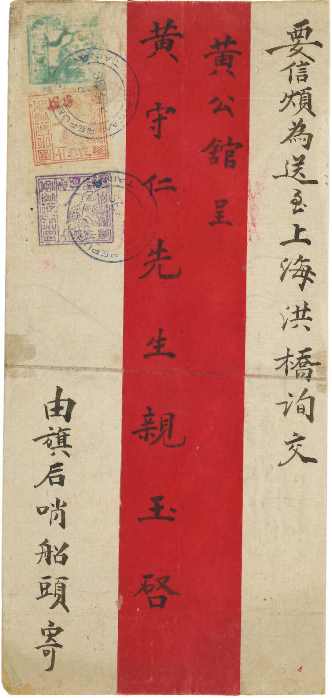 要信煩為送至上海洪橋询交
黃公館呈
黃守仁先生親玉啓
由旗后哨船頭寄